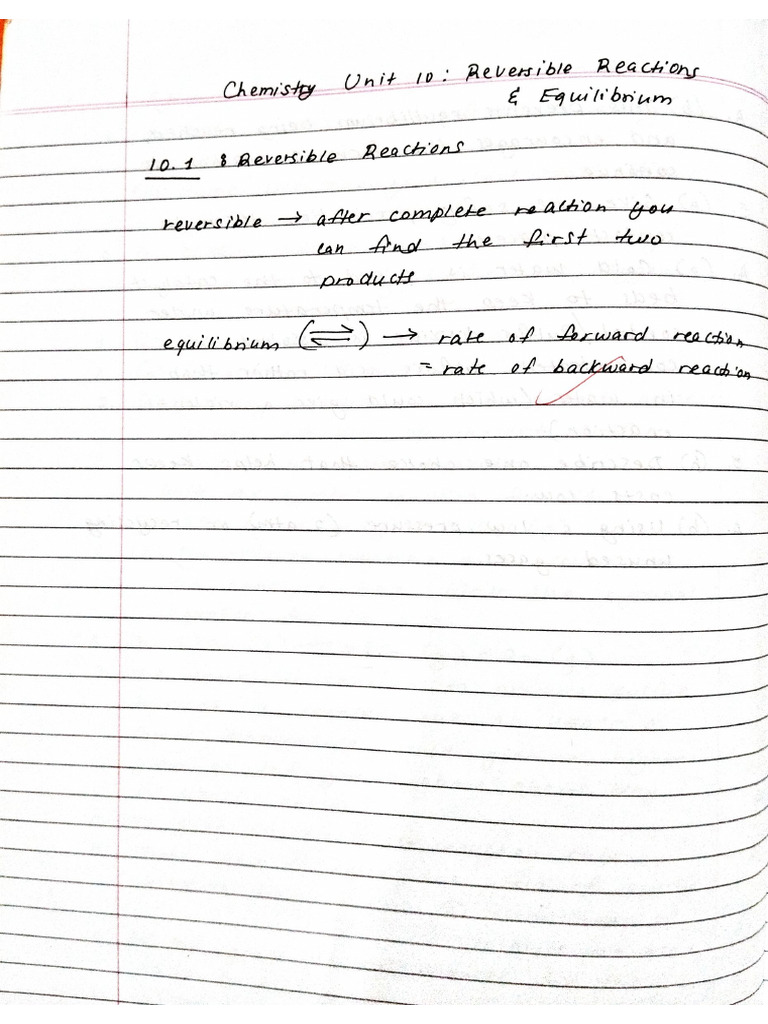 Chemistry Unit 10: Reversible Reactions
& Equilibrium
10.1 : Reversible Reactions
reversible → after complete reaction you
can find the first two
products
equilibrium (⇌) → rate of forward reaction
= rate of backward reaction